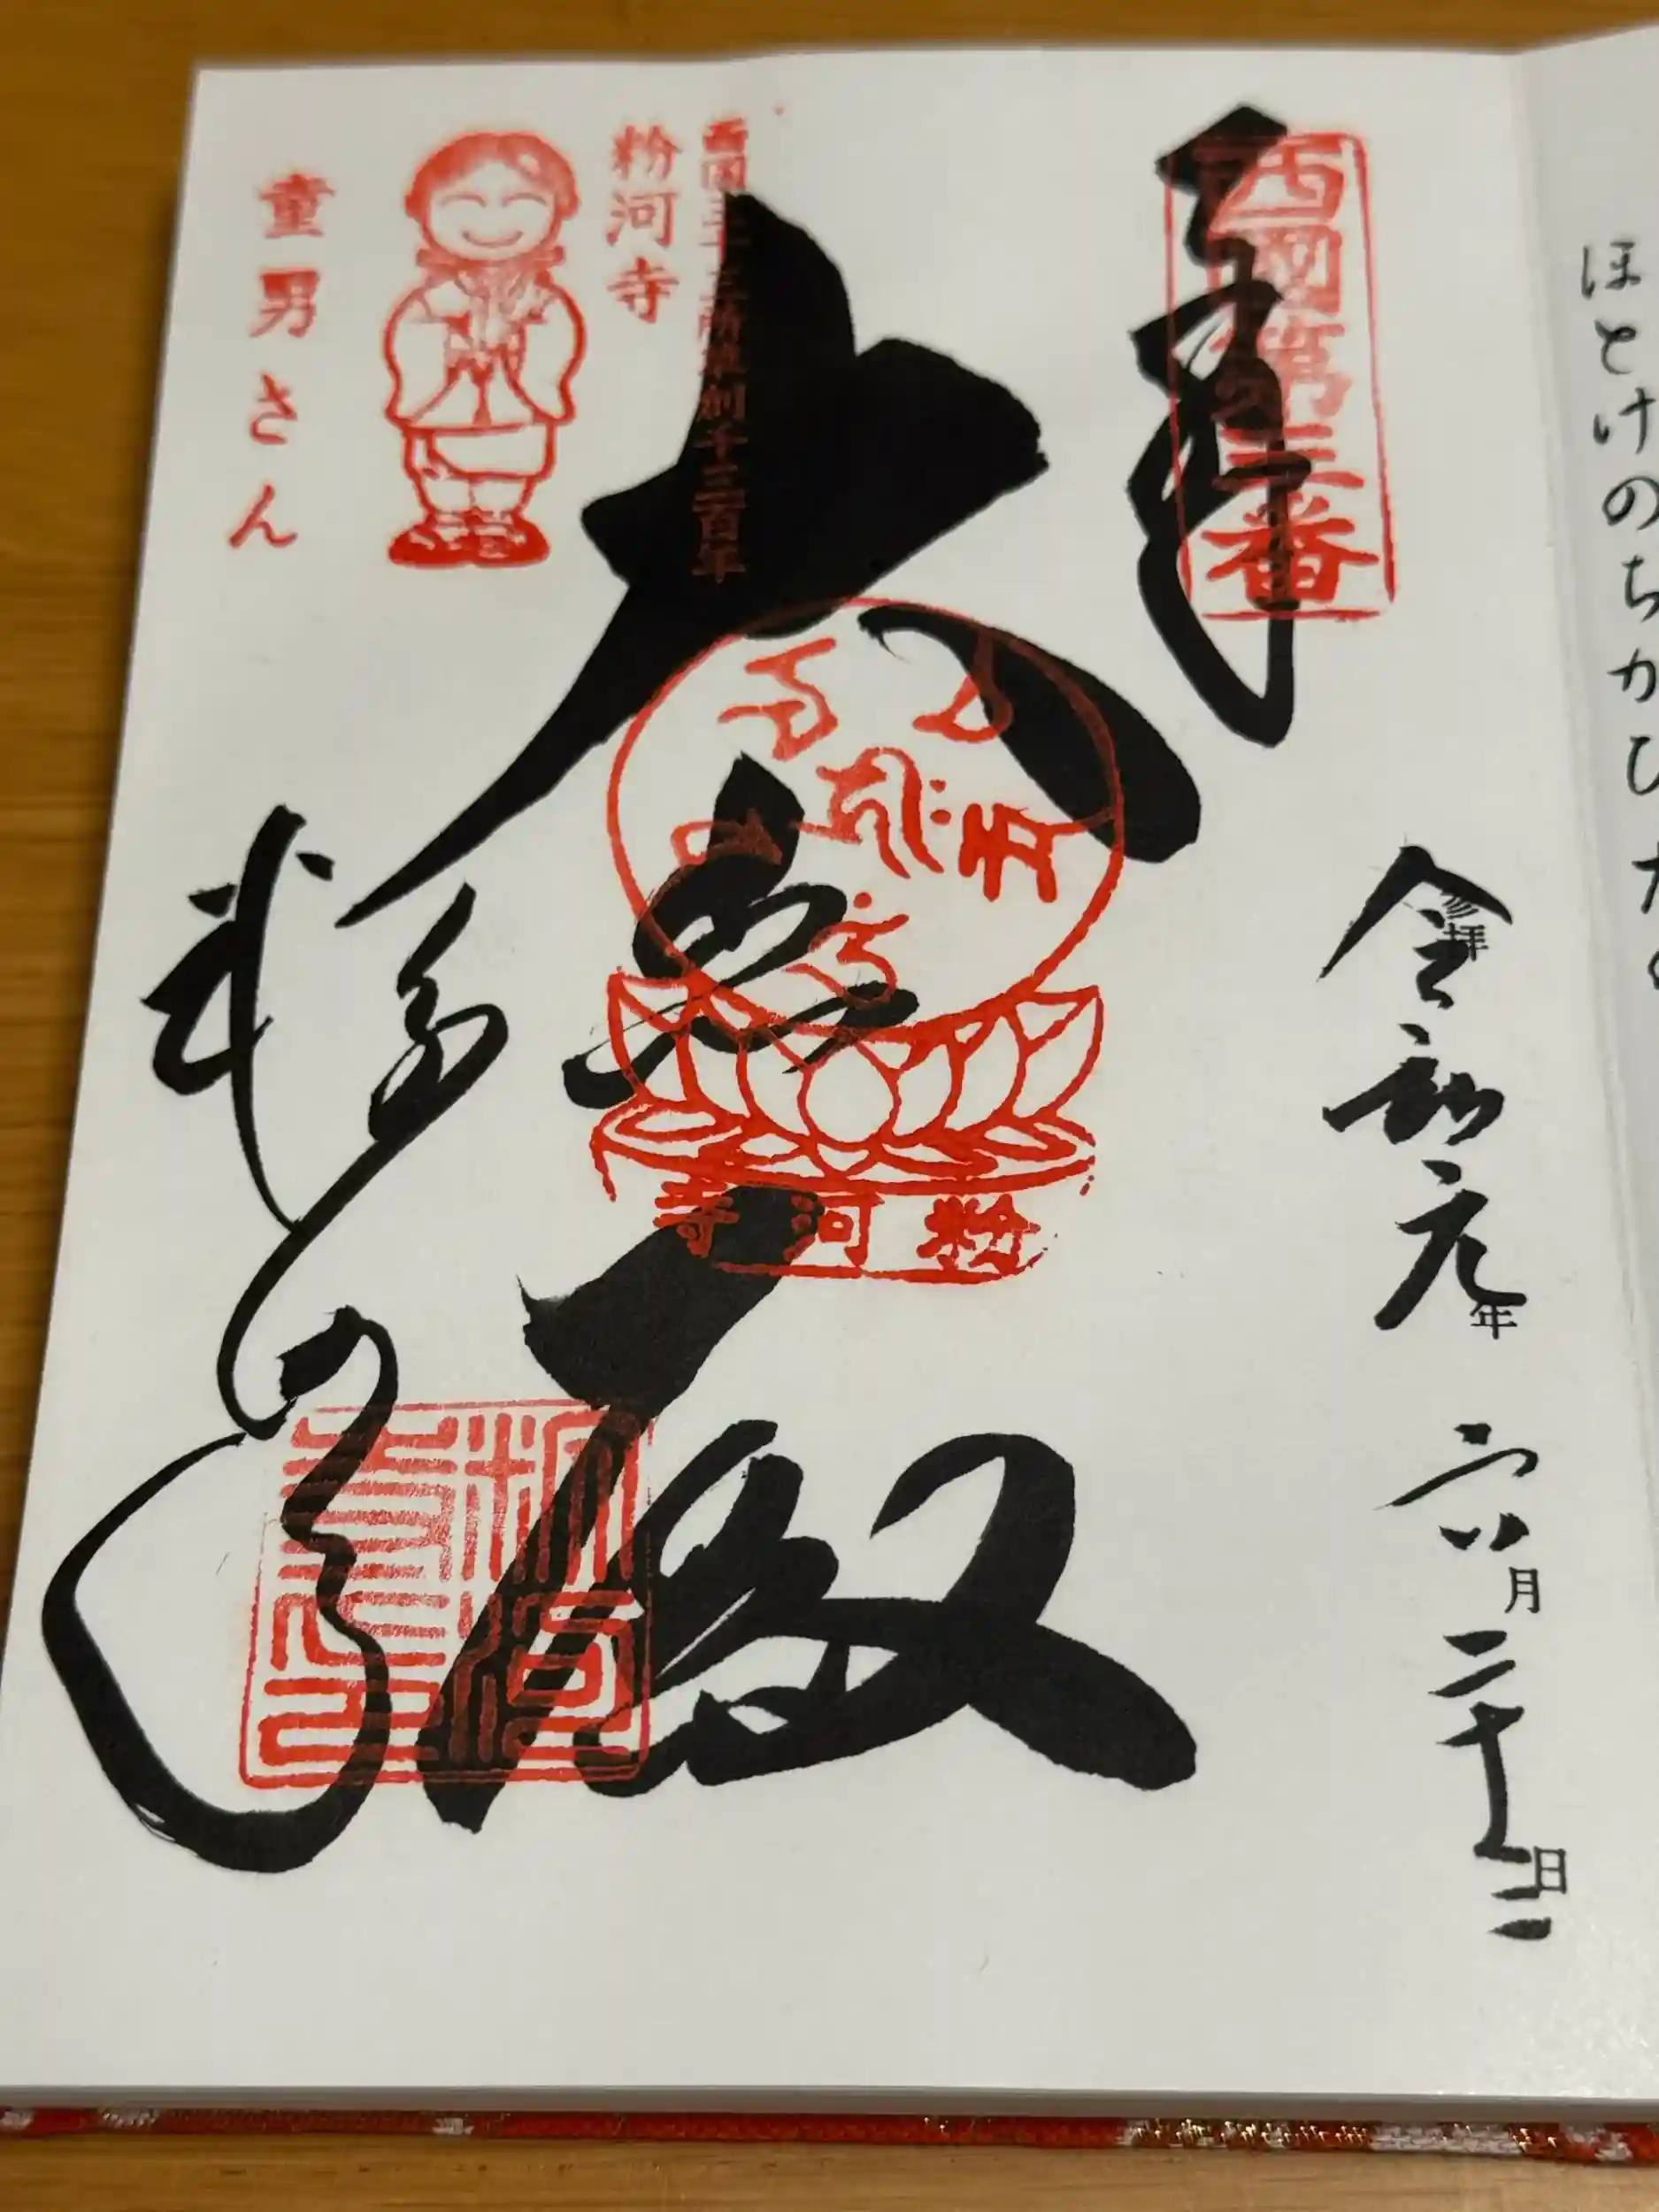 ほとけのちかひ
西國第三番
奉拝
参拝
令和元年
六月二十二日
大悲殿
西国三十三所草創千三百年
粉河寺
童男さん
五
粉河寺
粉河寺